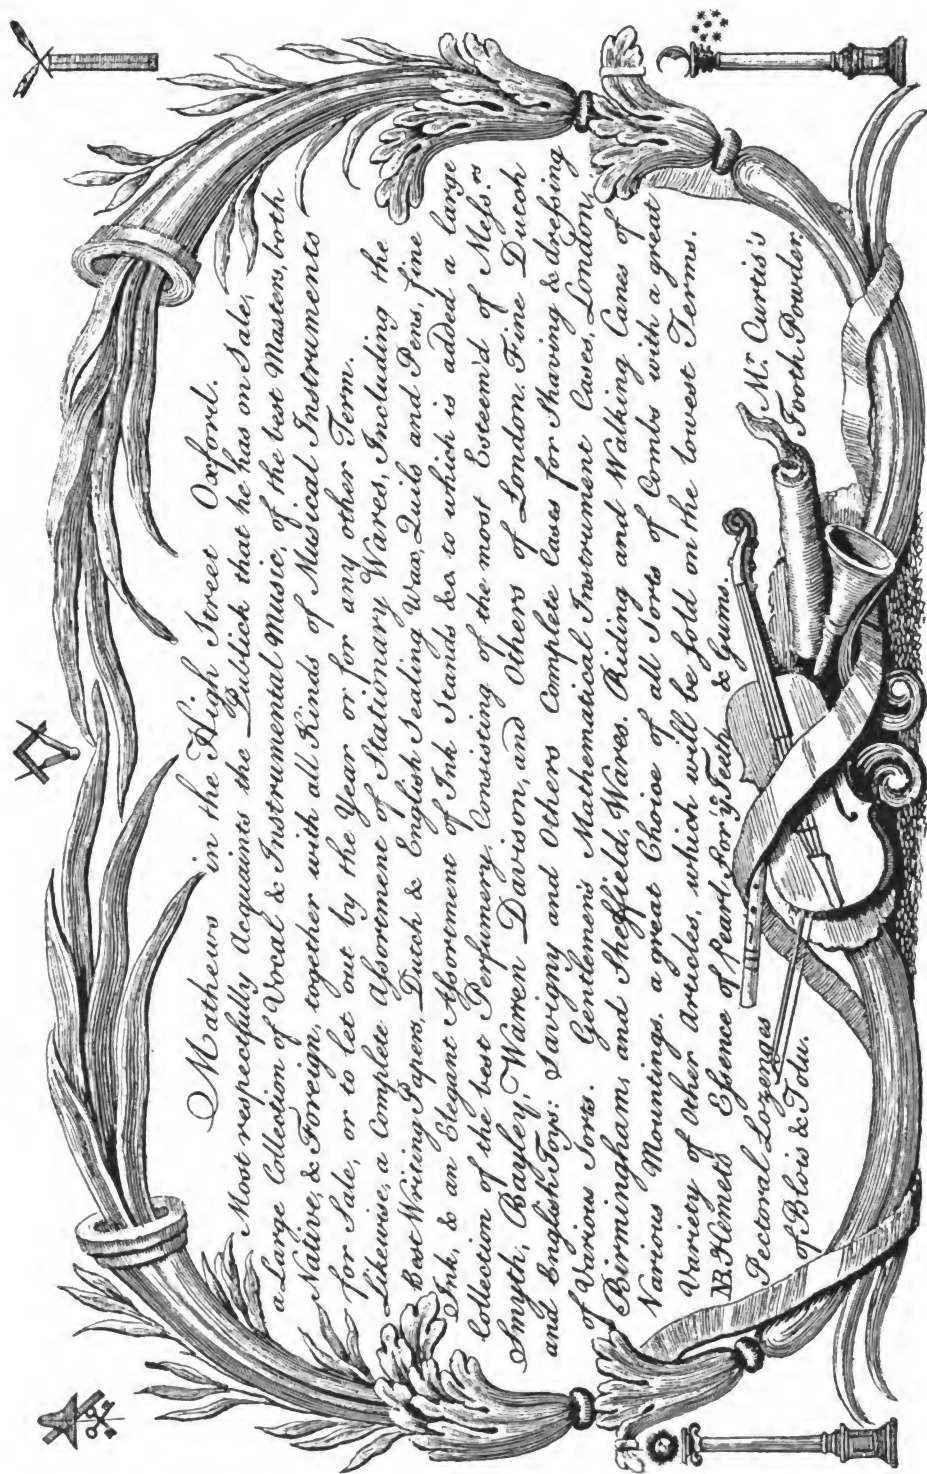 Mathews in the High Street Oxford.
Most respectfully Acquaints the Publick that he has on Sale,
a Large Collection of Vocal & Instrumental Music, of the best Masters, both
Native, & Foreign, together with all Kinds of Musical Instruments
for Sale, or to let out by the Year or for any other Term.
Likewise, a Complete Aſsortment of Stationary Wares, Including the
best Writing Papers, Dutch & English Sealing Wax, Quils and Pens, fine
Ink, & an Elegant Aſsortment of Ink Stands &c. to which is added a large
Collection of the best Perfumery, Consisting of the most Esteem'd of Meſs.rs
Smyth, Bayley, Warren Davison, and Others of London. Fine Dutch
and English Toys: Savigny and Others Complete Cases for Shaving & dreſsing
of Various Sorts. Gentlemens Mathematical Instrument Cases, London,
Birmingham, and Sheffield, Wares. Riding and Walking Canes of
Various Mountings. a great Choice of all Sorts of Combs with a great
Variety of Other Articles, which will be sold on the lowest Terms.
NB. Hemets Eſsence of Pearl, For ye. Teeth & Gums.
Pectoral Lozenges
of Blois & Tolu.
Mr. Curtis's
Tooth Powder.